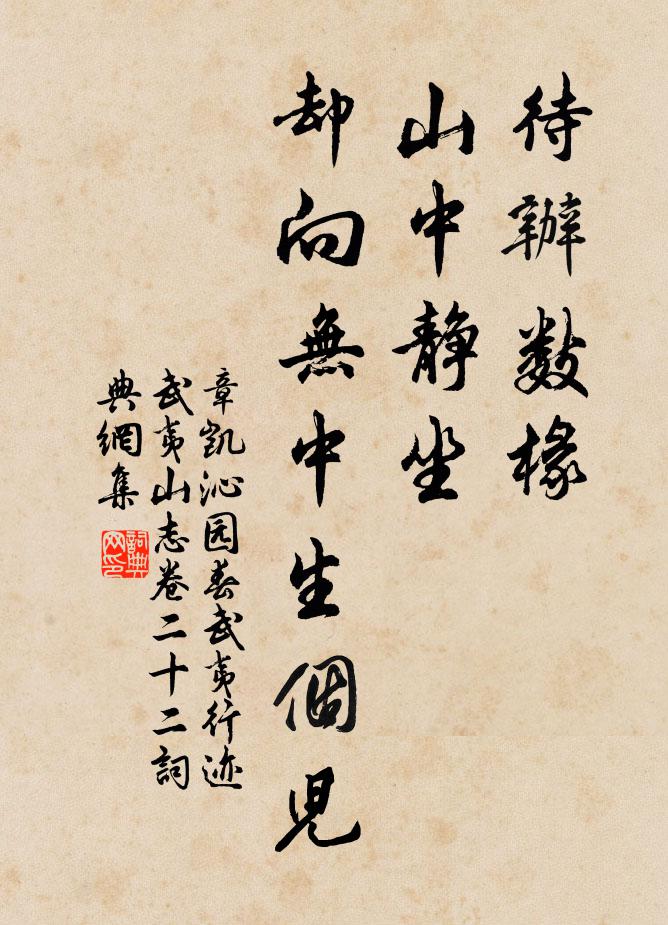 待辦數椽
山中靜坐
却向無中生個兒
章凯沁园春武夷行迹
武夷山志卷二十二詞
典網集
詞典
网印